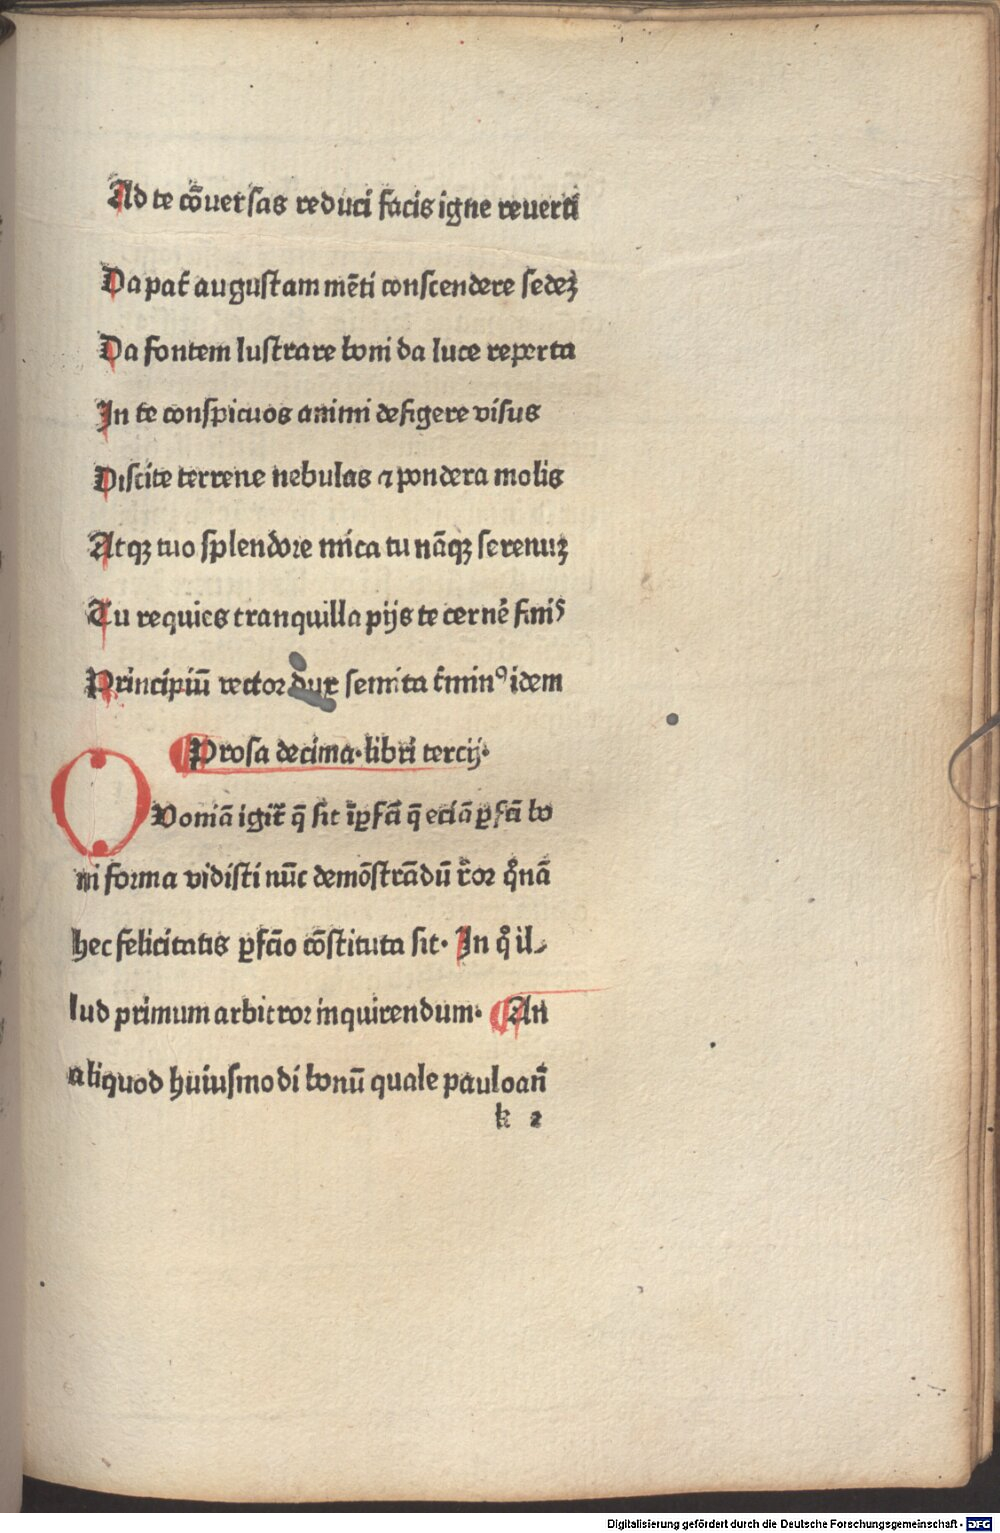 Ad te cōuersas reduci facis igne reuerti
Da pat̄ augustam mēti conscendere sedeꝫ
Da fontem lustrare boni da luce reperta
In te conspicuos animi defigere visus
Discite terrene nebulas ⁊ pondera molis
Atqꝫ tuo splendore mica tu nāqꝫ serenuꝫ
Tu requies tranquilla pijs te cernē finis
Principiū rector dux semita t̄minꝰ idem
Prosa decima· libri tercij·
Quoniā igit̄ q̄ sit īꝑfc̄i q̄ eciā ꝑfc̄i bo
ni forma vidisti nūc demōstrādū r̄or qͦnā
hec felicitatis ꝑfc̄io cōstituta sit· In qͦ il⸗
lud primum arbitror inquirendum· An
aliquod huiusmodi bonū quale pauloan̄
k 2
Digitalisierung gefördert durch die Deutsche Forschungsgemeinschaft - DFG